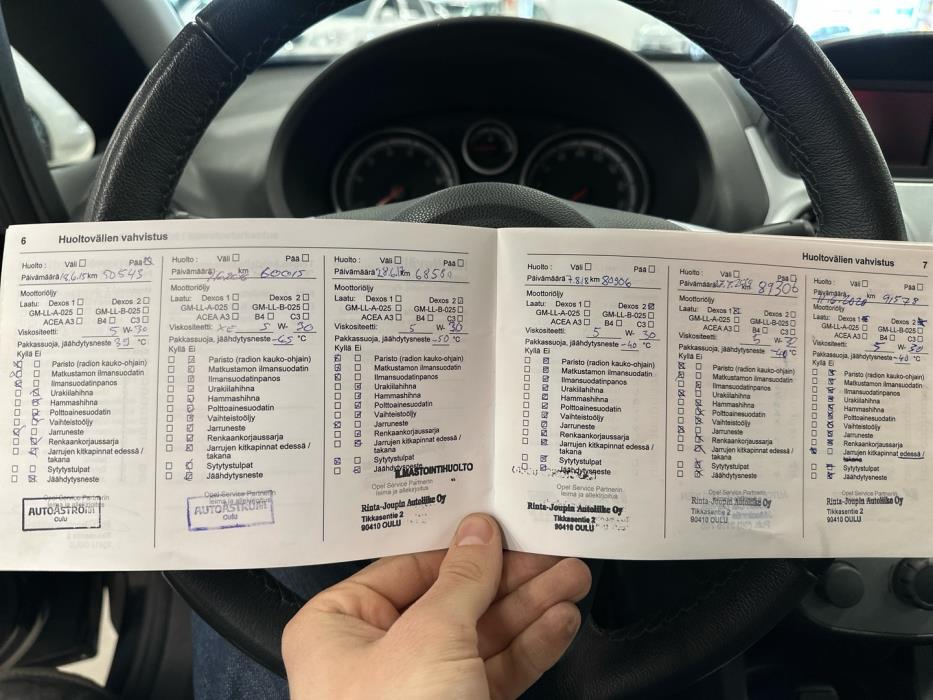 6 Huoltovälien vahvistus
Huolto: Väli Pää
Päivämäärä 18.6.15 km 50543
Moottoriöljy
Laatu: Dexos 1 Dexos 2
GM-LL-A-025 GM-LL-B-025
ACEA A3 B4 C3
Viskositeetti: 5 W-30
Pakkassuoja, jäähdytysneste 39 °C
Kyllä Ei
Paristo (radion kauko-ohjain)
Matkustamon ilmansuodatin
Ilmansuodatinpanos
Urakiilahihna
Hammashihna
Polttoainesuodatin
Vaihteistoöljy
Jarruneste
Renkaankorjaussarja
Jarrujen kitkapinnat edessä /
takana
Sytytystulpat
Jäähdytysneste
AUTOASTRUM
OULU
Huolto: Väli Pää
Päivämäärä km 60015
Moottoriöljy
Laatu: Dexos 1 Dexos 2
GM-LL-A-025 GM-LL-B-025
ACEA A3 B4 C3
Viskositeetti: 5 W- 30
Pakkassuoja, jäähdytysneste -45 °C
Kyllä Ei
Paristo (radion kauko-ohjain)
Matkustamon ilmansuodatin
Ilmansuodatinpanos
Urakiilahihna
Hammashihna
Polttoainesuodatin
Vaihteistoöljy
Jarruneste
Renkaankorjaussarja
Jarrujen kitkapinnat edessä /
takana
Sytytystulpat
Jäähdytysneste
Opel Service Partnerin
leima ja allekirjoitus
AUTOASTRUM
OULU
Huolto: Väli Pää
Päivämäärä km
Moottoriöljy
Laatu: Dexos 1 Dexos 2
GM-LL-A-025 GM-LL-B-025
ACEA A3 B4 C3
Viskositeetti: 5 W- 30
Pakkassuoja, jäähdytysneste -50 °C
Kyllä Ei
Paristo (radion kauko-ohjain)
Matkustamon ilmansuodatin
Ilmansuodatinpanos
Urakiilahihna
Hammashihna
Polttoainesuodatin
Vaihteistoöljy
Jarruneste
Renkaankorjaussarja
Jarrujen kitkapinnat edessä /
takana
Sytytystulpat
Jäähdytysneste
ILMASTOINTIHUOLTO
Opel Service Partnerin
leima ja allekirjoitus
Rinta-Joupin Autoliike Oy
Tikkasentie 2
90410 OULU
Huoltovälien vahvistus 7
Huolto: Väli Pää
Päivämäärä 7.8.18 km 80906
Moottoriöljy
Laatu: Dexos 1 Dexos 2
GM-LL-A-025 GM-LL-B-025
ACEA A3 B4 C3
Viskositeetti: 5 W- 30
Pakkassuoja, jäähdytysneste -40 °C
Kyllä Ei
Paristo (radion kauko-ohjain)
Matkustamon ilmansuodatin
Ilmansuodatinpanos
Urakiilahihna
Hammashihna
Polttoainesuodatin
Vaihteistoöljy
Jarruneste
Renkaankorjaussarja
Jarrujen kitkapinnat edessä /
takana
Sytytystulpat
Jäähdytysneste
Opel Service Partnerin
leima ja allekirjoitus
Rinta-Joupin Autoliike Oy
Tikkasentie 2
90410 OULU
Huolto: Väli Pää
Päivämäärä km 89306
Moottoriöljy
Laatu: Dexos 1 Dexos 2
GM-LL-A-025 GM-LL-B-025
ACEA A3 B4 C3
Viskositeetti: 5 W-
Pakkassuoja, jäähdytysneste -40 °C
Kyllä Ei
Paristo (radion kauko-ohjain)
Matkustamon ilmansuodatin
Ilmansuodatinpanos
Urakiilahihna
Hammashihna
Polttoainesuodatin
Vaihteistoöljy
Jarruneste
Renkaankorjaussarja
Jarrujen kitkapinnat edessä /
takana
Sytytystulpat
Jäähdytysneste
Opel Service Partnerin
Rinta-Joupin Autoliike Oy
Tikkasentie 2
90410 OULU
Huolto: Väli Pää
Päivämäärä km 91578
Moottoriöljy
Laatu: Dexos 1 Dexos 2
GM-LL-A-025 GM-LL-B-025
ACEA A3 B4 C3
Viskositeetti: 5 W- 30
Pakkassuoja, jäähdytysneste -40 °C
Kyllä Ei
Paristo (radion kauko-ohjain)
Matkustamon ilmansuodatin
Ilmansuodatinpanos
Urakiilahihna
Hammashihna
Polttoainesuodatin
Vaihteistoöljy
Jarruneste
Renkaankorjaussarja
Jarrujen kitkapinnat edessä /
takana
Sytytystulpat
Jäähdytysneste
Opel Service Partnerin
leima ja allekirjoitus
Rinta-Joupin Autoliike Oy
Tikkasentie 2
90410 OULU